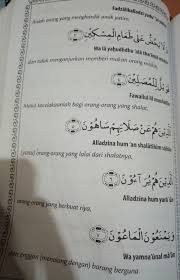 Fadzālikalladzī yadu''ul yatīm
itulah orang yang menghardik anak yatim,
وَلَا يَحُضُّ عَلَىٰ طَعَامِ الْمِسْكِينِ
Wa lā yaḥudhdhu 'alā tha'āmil miskīn
dan tidak menganjurkan memberi makan orang miskin.
فَوَيْلٌ لِلْمُصَلِّينَ
Fawailul lil mushallīn
Maka kecelakaanlah bagi orang-orang yang shalat,
الَّذِينَ هُمْ عَنْ صَلَاتِهِمْ سَاهُونَ
Alladzīna hum 'an shalātihim sāhūn
(yaitu) orang-orang yang lalai dari shalatnya,
الَّذِينَ هُمْ يُرَاءُونَ
Alladzīna hum yurā'ūn
orang-orang yang berbuat riya,
وَيَمْنَعُونَ الْمَاعُونَ
Wa yamna'ūnal mā'ūn
dan enggan (menolong dengan) barang berguna